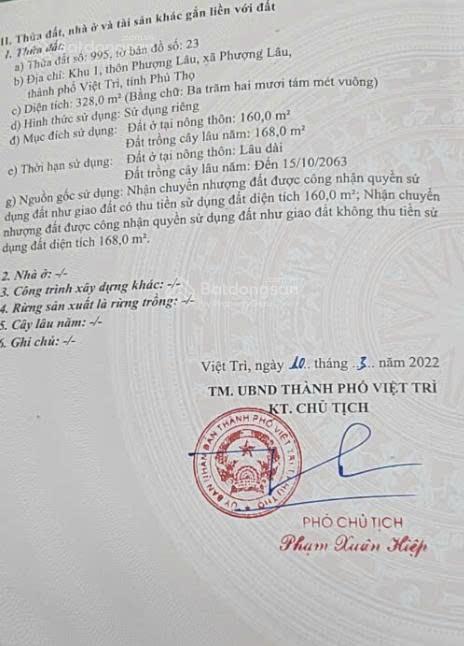 II. Thửa đất, nhà ở và tài sản khác gắn liền với đất
1. Thửa đất:
a) Thửa đất số: 995, tờ bản đồ số: 23
b) Địa chỉ: Khu 1, thôn Phượng Lâu, xã Phượng Lâu,
thành phố Việt Trì, tỉnh Phú Thọ
c) Diện tích: 328,0 m² (Bằng chữ: Ba trăm hai mươi tám mét vuông)
d) Hình thức sử dụng: Sử dụng riêng
đ) Mục đích sử dụng: Đất ở tại nông thôn: 160,0 m²
Đất trồng cây lâu năm: 168,0 m²
e) Thời hạn sử dụng: Đất ở tại nông thôn: Lâu dài
Đất trồng cây lâu năm: Đến 15/10/2063
g) Nguồn gốc sử dụng: Nhận chuyển nhượng đất được công nhận quyền sử
dụng đất như giao đất có thu tiền sử dụng đất diện tích 160,0 m²; Nhận chuyển
nhượng đất được công nhận quyền sử dụng đất như giao đất không thu tiền sử
dụng đất diện tích 168,0 m².
2. Nhà ở: -/-
3. Công trình xây dựng khác: -/-
4. Rừng sản xuất là rừng trồng: -/-
5. Cây lâu năm: -/-
6. Ghi chú: -/-
Batdongsan
Việt Trì, ngày 10.. tháng .3.. năm 2022
TM. UBND THÀNH PHỐ VIỆT TRÌ
KT. CHỦ TỊCH
ỦY BAN NHÂN DÂN THÀNH PHỐ VIỆT TRÌ T. PHÚ THỌ
PHÓ CHỦ TỊCH
Phạm Xuân Hiệp